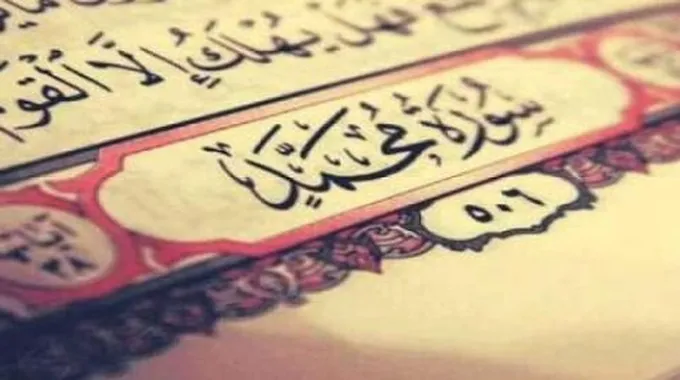 فَهَلْ يُهْلَكُ إِلَّا ٱلْقَوْ
سُورَةُ مُحَمَّدٍ
٣٨
٥٠٦